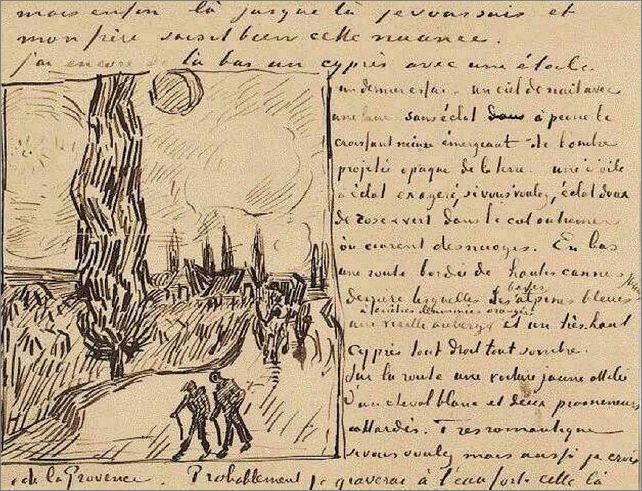 mais enfin là jusque là je vous sais et
mon père saisit bien cette nuance.
J'ai encore de là bas un cyprès avec une étoile
un dernier essai - un ciel de nuit avec
une lune sans éclat à peine le
croissant mince émergeant de l'ombre
projetée opaque de la terre. une étoile
à éclat exagéré, si vous voulez, éclat doux
de rose et vert dans le ciel outremer
où courent des nuages. En bas
une route bordée de hautes cannes
derrière lesquelles les basses alpines bleues
une vieille auberge à fenêtres illuminées orangée et un très haut
cyprès tout droit tout sombre.
Sur la route une voiture jaune attelée
d'un cheval blanc et deux promeneurs
attardés. Très romantique
si vous voulez mais aussi je crois
de la Provence. Probablement je graverai à l'eau forte celle là